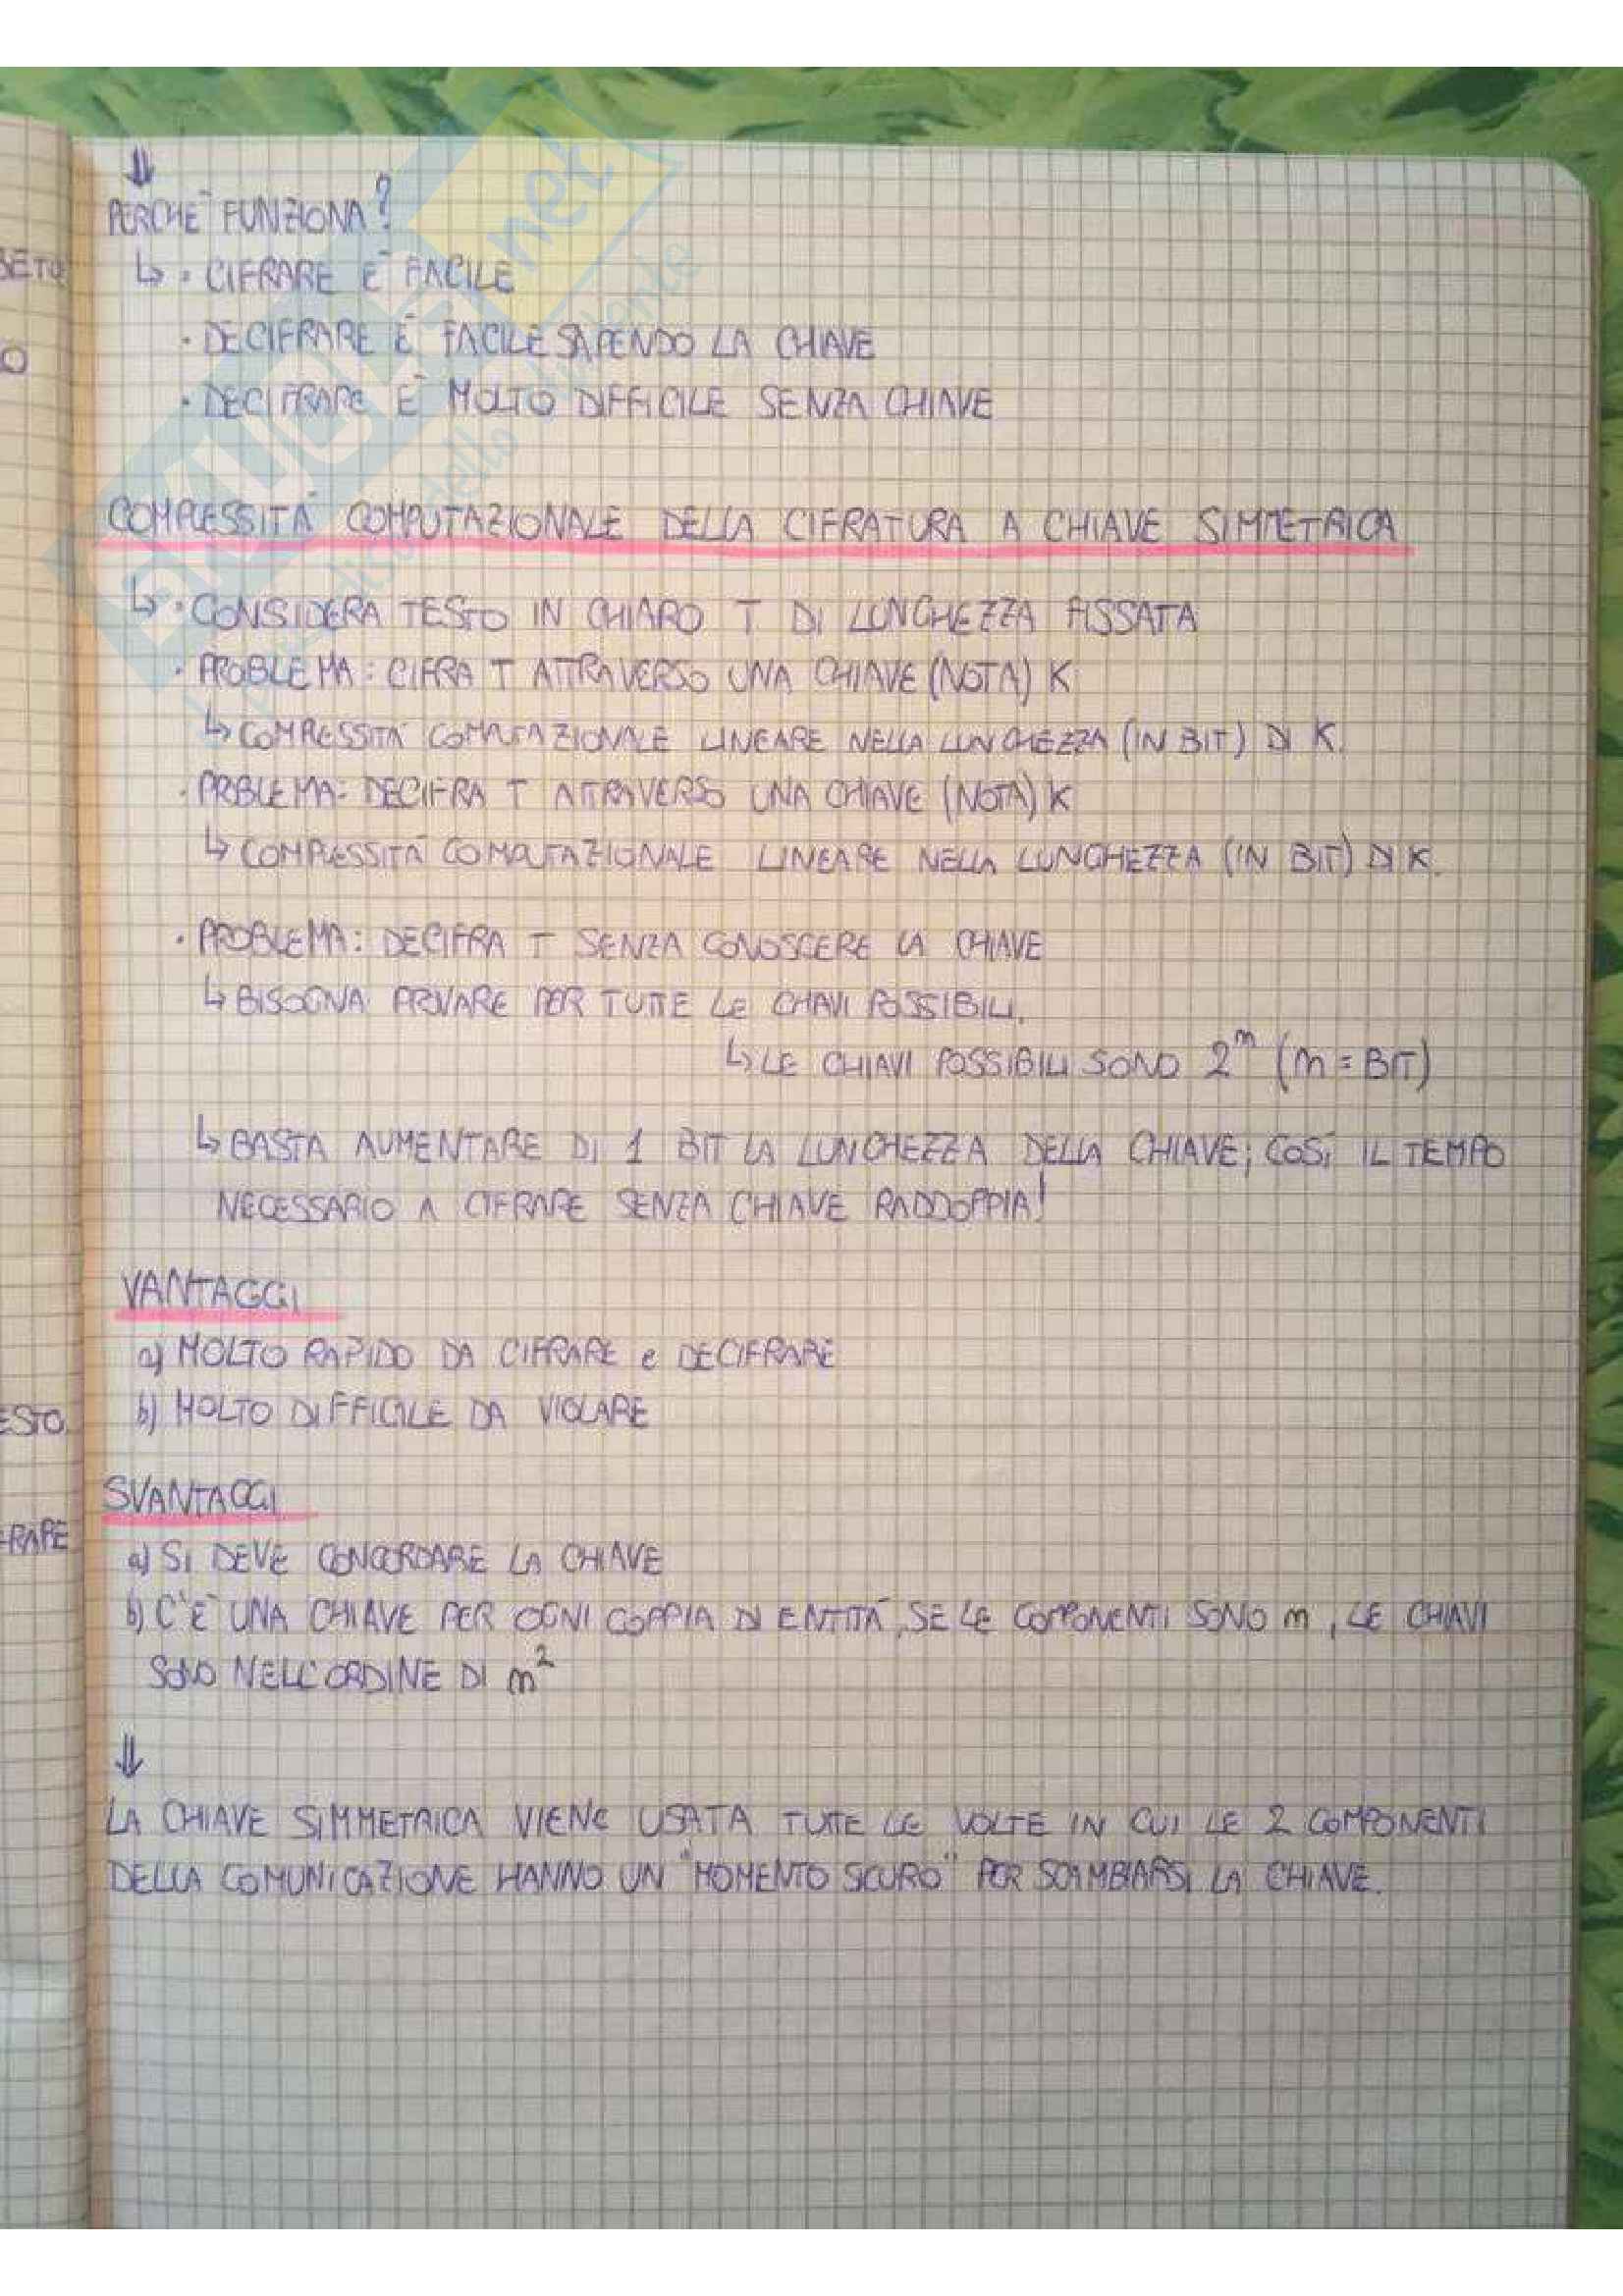 ⇓
PERCHÈ FUNZIONA?
↳ · CIFRARE È FACILE
· DECIFRARE È FACILE SAPENDO LA CHIAVE
· DECIFRARE È MOLTO DIFFICILE SENZA CHIAVE
COMPLESSITÀ COMPUTAZIONALE DELLA CIFRATURA A CHIAVE SIMMETRICA
↳ · CONSIDERA TESTO IN CHIARO T DI LUNGHEZZA FISSATA
· PROBLEMA: CIFRA T ATTRAVERSO UNA CHIAVE (NOTA) K
↳ COMPLESSITÀ COMPUTAZIONALE LINEARE NELLA LUNGHEZZA (IN BIT) DI K.
· PRBLEMA: DECIFRA T ATTRAVERSO UNA CHIAVE (NOTA) K
↳ COMPLESSITÀ COMPUTAZIONALE LINEARE NELLA LUNGHEZZA (IN BIT) DI K.
· PROBLEMA: DECIFRA T SENZA CONOSCERE LA CHIAVE
↳ BISOGNA PROVARE PER TUTTE LE CHIAVI POSSIBILI.
↳ LE CHIAVI POSSIBILI SONO 2^m (m = BIT)
↳ BASTA AUMENTARE DI 1 BIT LA LUNGHEZZA DELLA CHIAVE; COSÌ IL TEMPO
NECESSARIO A CIFRARE SENZA CHIAVE RADDOPPIA!
VANTAGGI
a) MOLTO RAPIDO DA CIFRARE e DECIFRARE
b) MOLTO DIFFICILE DA VIOLARE
SVANTAGGI
a) SI DEVE CONCORDARE LA CHIAVE
b) C'È UNA CHIAVE PER OGNI COPPIA DI ENTITÀ, SE LE COMPONENTI SONO m, LE CHIAVI
SONO NELL'ORDINE DI m²
⇓
LA CHIAVE SIMMETRICA VIENE USATA TUTTE LE VOLTE IN CUI LE 2 COMPONENTI
DELLA COMUNICAZIONE HANNO UN "MOMENTO SICURO" PER SCAMBIARSI LA CHIAVE.